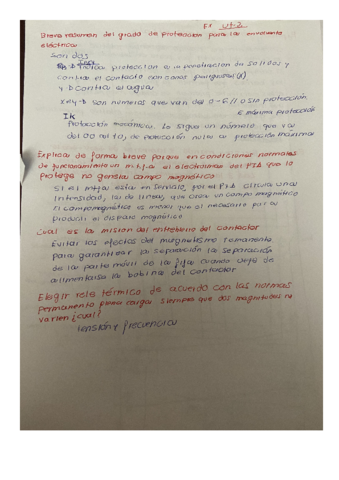 F1 UT-2
Breve resumen del grado de protección para las envolventes
eléctricas
Son dos
protección a penetración de solidos y
contra el contacto con zonas peligrosas (X)
y b contra el agua
x e y → Son números que van del 0-6 // 0 sin protección
6 máxima protección
IK
Protección mecánica. Lo sigue un número que va
del 00 al 10, de protección nula a protección máxima
Explicar de forma breve porque en condiciones normales
de funcionamiento un mtga el electroiman del PIA que lo
protege no genera campo magnético
Si el mtga esta en servicio, por el PIA circula una
intensidad, la de linea, que crea un campo magnético
El campo magnético es menor que el necesario para
producir el disparo magnético
Cual es la mision del entrehierro del contactor
Evitar los efectos del magnetismo remanente
para garantizar la separación la separación
de la parte móvil de la fija cuando deja de
alimentarse la bobina del contactor
Elegir relé térmico de acuerdo con las normas
permanente para cargas siempre que dos magnitudes no
varien ¿cual?
tensión y frecuencia